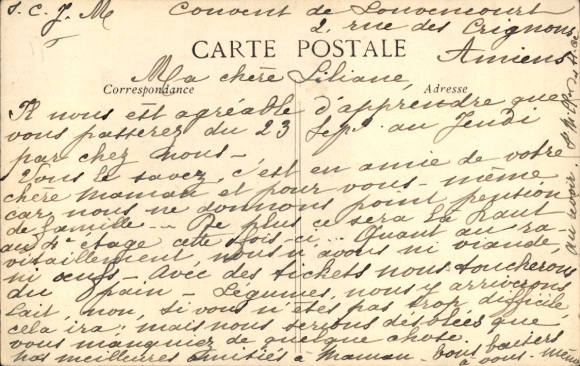 S. C. J. M Convent de Louvencourt
2, rue des Crignons
Amiens
CARTE POSTALE
Ma chère Liliane,
Correspondance Adresse
Il nous est agréable d'apprendre que
vous passerez du 23 Sept. au Jeudi
par chez nous -
Vous le savez, c'est en amie de votre
chère maman et pour vous-même
car nous ne donnons point pension
de famille... De plus ce sera là haut
au 4e étage cette fois-ci... Quant au ra-
vitaillement, nous n'avons ni viande,
ni oeufs - Avec des tickets nous toucherons
du pain - Légumes, nous y arriverons
lait, non, si vous n'êtes pas trop difficile
cela ira; mais nous serions désolées que
vous manquiez de quelque chose.
nos meilleures amitiés à Maman - bons baisers
à vous-même
au revoir.